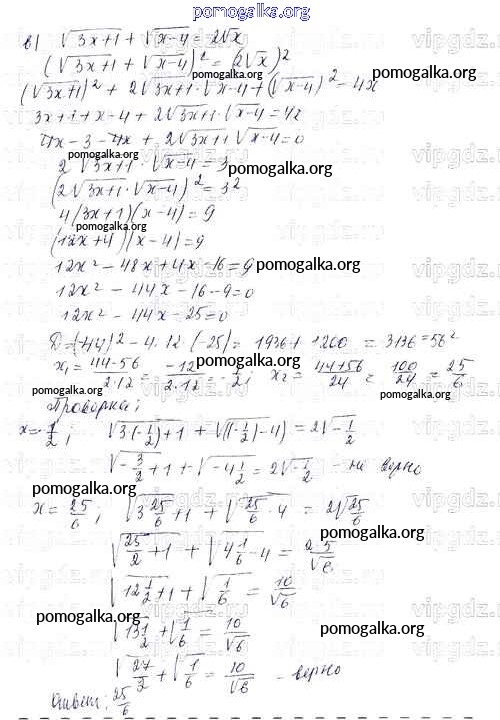 pomogalka.org
в) √(3x+1) + √(x-4) = 2√x
(√(3x+1) + √(x-4))² = (2√x)²
pomogalka.org
(√(3x+1))² + 2√(3x+1)·√(x-4) + (√(x-4))² = 4x
3x+1+x-4+2√(3x+1)·√(x-4) = 4x
pomogalka.org
4x-3-4x+2√(3x+1)·√(x-4) = 0
2√(3x+1)·√(x-4) = 3
pomogalka.org
pomogalka.org
(2√(3x+1)·√(x-4))² = 3²
4(3x+1)(x-4) = 9
(12x+4)(x-4) = 9
12x² - 48x + 4x - 16 = 9
pomogalka.org
12x² - 44x - 16 - 9 = 0
12x² - 44x - 25 = 0
D = (-44)² - 4·12·(-25) = 1936 + 1200 = 3136 = 56²
pomogalka.org
x₁ = (44-56)/(2·12) = -12/(2·12) = -1/2; x₂ = (44+56)/24 = 100/24 = 25/6
pomogalka.org
pomogalka.org
Проверка:
x = -1/2; √(3(-1/2)+1) + √((-1/2)-4) = 2√(-1/2)
√(-3/2+1) + √(-4 1/2) = 2√(-1/2) - не верно
pomogalka.org
x = 25/6; √(3 25/6+1) + √(25/6-4) = 2√(25/6)
pomogalka.org
pomogalka.org
√(25/2+1) + √(4 1/6-4) = 2·5/√6
√(12 1/2+1) + √(1/6) = 10/√6
pomogalka.org
√(13 1/2) + √(1/6) = 10/√6
pomogalka.org
√(27/2) + √(1/6) = 10/√6 - верно
pomogalka.org
Ответ: 25/6
vipgdz.ru